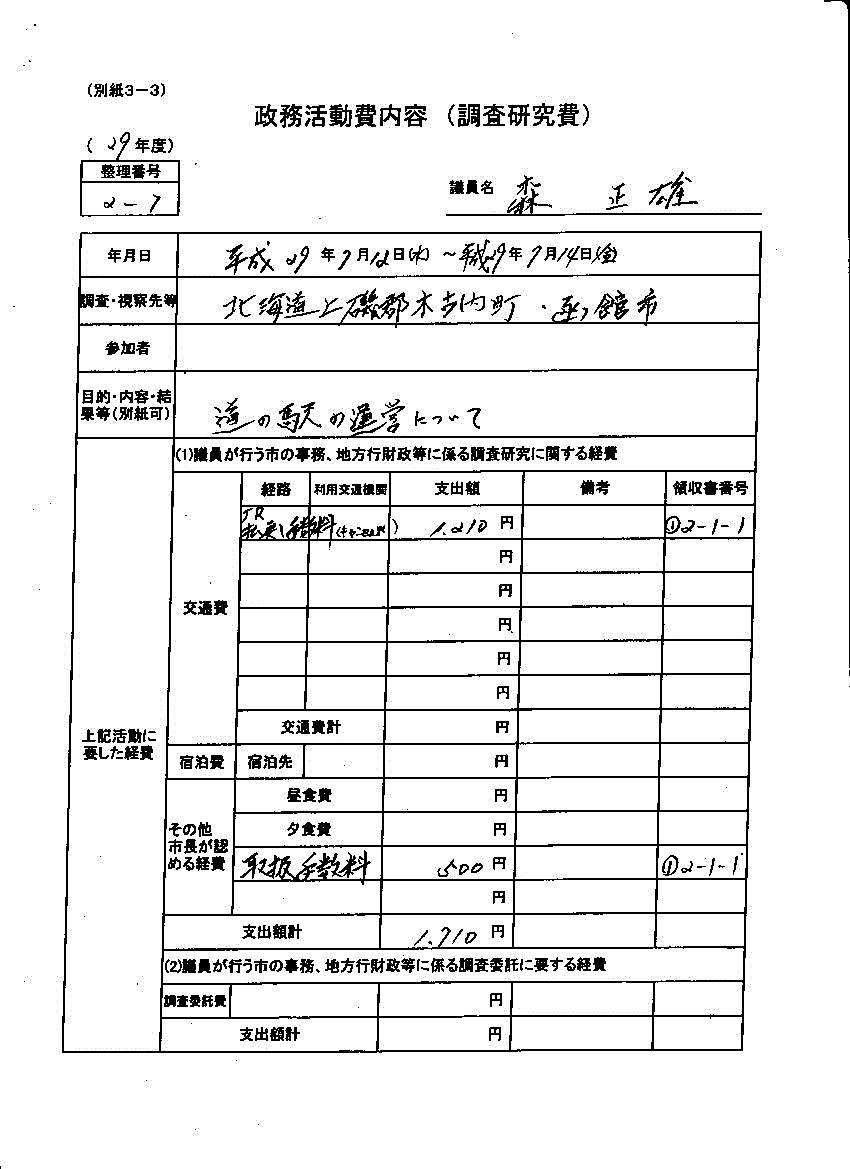 (別紙3-3)
政務活動費内容 (調査研究費)
( 29 年度)
整理番号
2-7
議員名 森 正雄
年月日 平成 29 年 7 月 12 日(水) ~平成29年 7 月 14 日(金)
調査・視察先等 北海道上磯郡木古内町・函館市
参加者
目的・内容・結果等(別紙可) 道の駅の運営について
上記活動に要した経費
(1)議員が行う市の事務、地方行財政等に係る調査研究に関する経費
経路 利用交通機関 支出額 備考 領収書番号
交通費
JR
払戻し手数料(キャンセル代) 1,210 円 ①2-1-1
円
円
円
円
円
交通費計 円
宿泊費 宿泊先 円
その他市長が認める経費
昼食費 円
夕食費 円
取扱手数料 500 円 ①2-1-1
円
支出額計 1,710 円
(2)議員が行う市の事務、地方行財政等に係る調査委託に要する経費
調査委託費 円
支出額計 円